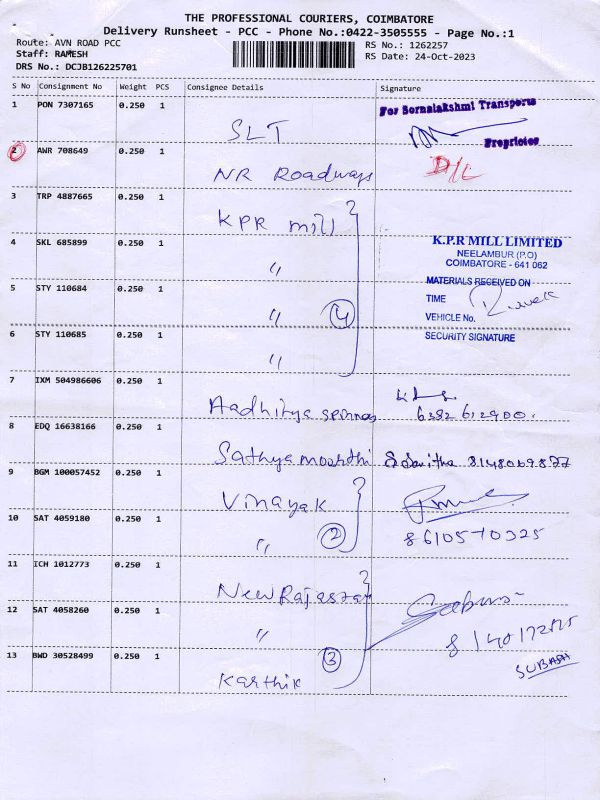 THE PROFESSIONAL COURIERS, COIMBATORE
Delivery Runsheet - PCC - Phone No.:0422-3505555 - Page No.:1
Route: AVN ROAD PCC
Staff: RAMESH
DRS No.: DCJB126225701
RS No.: 1262257
RS Date: 24-Oct-2023
S No Consignment No Weight PCS Consignee Details Signature
1 PON 7307165 0.250 1 SLT
For Sornalakshmi Transports
Proprietor
2 AWR 708649 0.250 1 NR Roadways D/L
3 TRP 4887665 0.250 1 KPR mill
4 SKL 685899 0.250 1 "
K.P.R MILL LIMITED
NEELAMBUR (P.O)
COIMBATORE - 641 062
5 STY 110684 0.250 1 " 4
MATERIALS RECEIVED ON
TIME
VEHICLE No.
SECURITY SIGNATURE
6 STY 110685 0.250 1 "
7 IXM 504986606 0.250 1 Aadhitya
6382612900.
8 EDQ 16638166 0.250 1 Sathyamoorthi 8148069877
9 BGM 100057452 0.250 1 Vinayak
10 SAT 4059180 0.250 1 " 2
8610570325
11 ICH 1012773 0.250 1 New Rajastan
12 SAT 4058260 0.250 1 "
13 BWD 30528499 0.250 1 Karthik 3
SUBASH